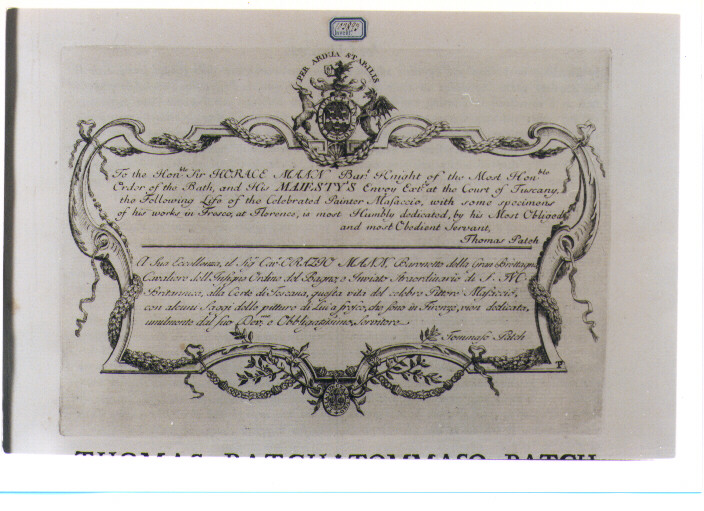 PER ARDUA STABILIS
To the Hon.ble Sir HORACE MANN Bar.t Knight of the Most Hon.ble
Order of the Bath, and His MAJESTY'S Envoy Ext.y at the Court of Tuscany,
the Following Life of the Celebrated Painter Masaccio, with some specimens
of his works in Fresco, at Florence, is most Humbly dedicated, by his Most Obliged
and most Obedient Servant,
Thomas Patch
A Sua Eccellenza, il Sig.r Cav.r ORAZIO MANN, Baronetto della Gran Brettagna
Cavaliere dell'Insigne Ordine del Bagno, e Inviato Straordinario di S. M.
Britannica, alla Corte di Toscana, questa vita del celebre Pittore Masaccio,
con alcuni Saggi delle pitture di lui a fresco, che sono in Firenze, vien dedicata,
umilmente dal suo Dev.mo e Obbligatissimo servitore
Tommaso Patch
THOMAS PATCH TOMMASO PATCH